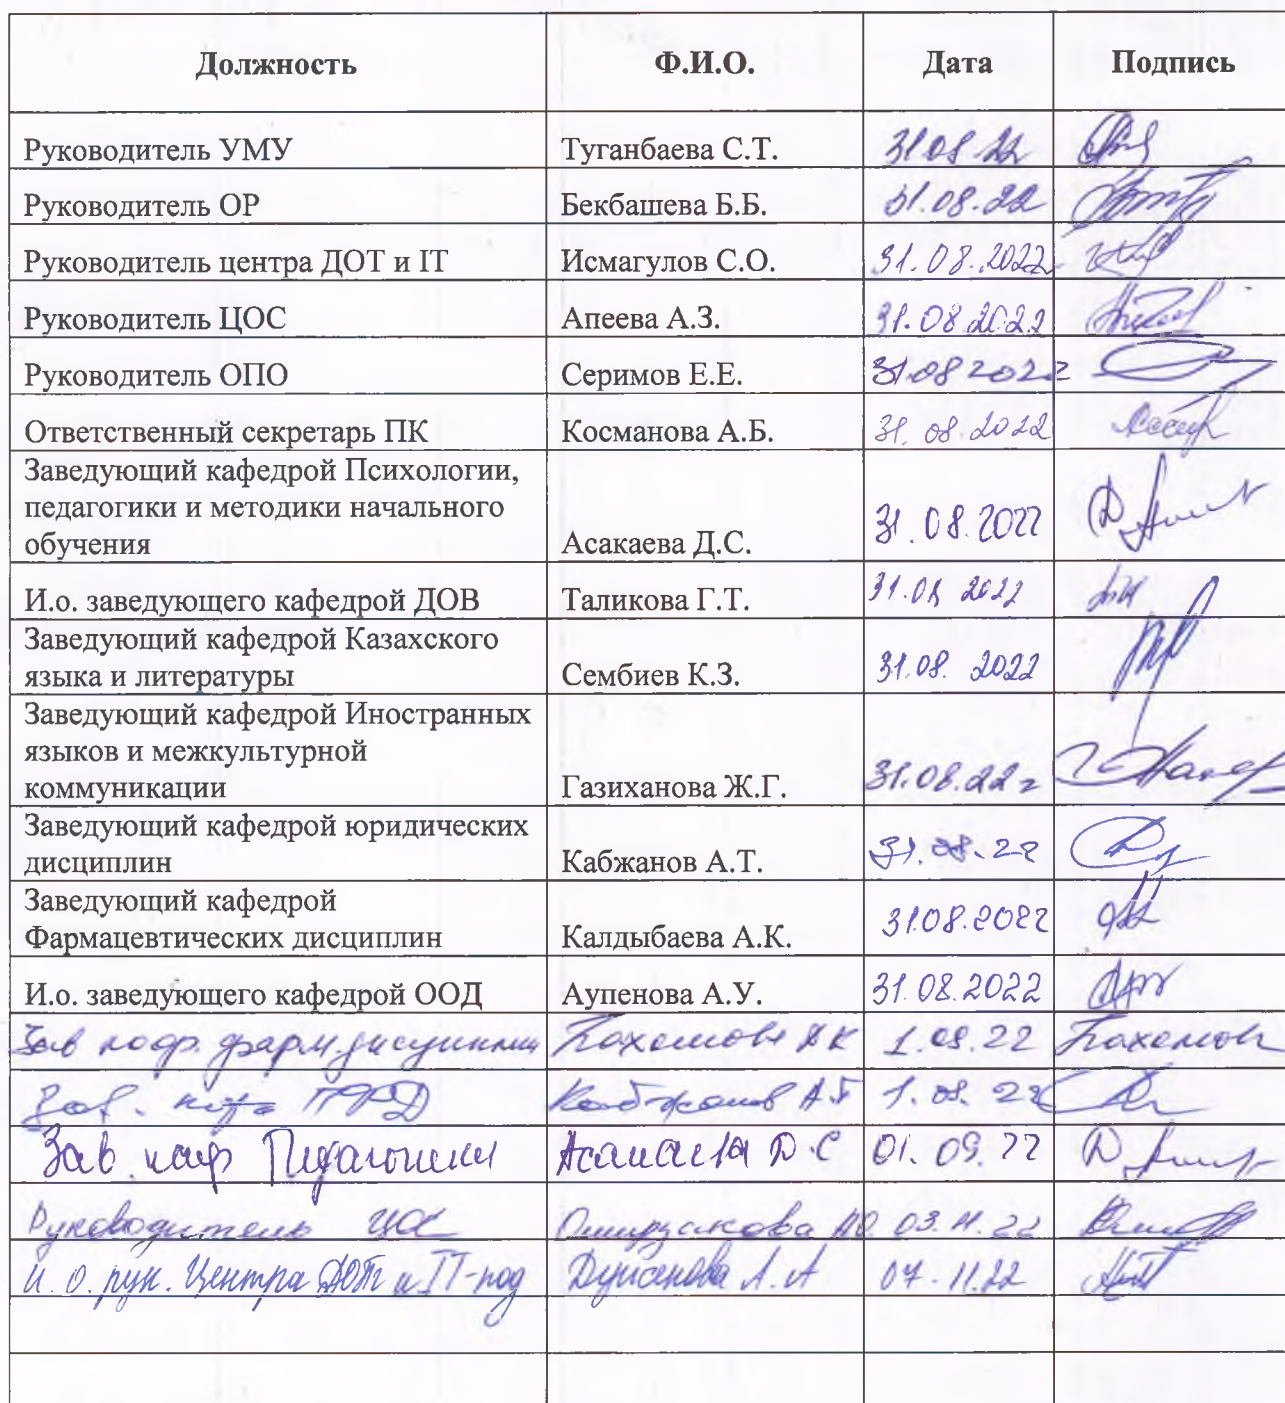 Должность Ф.И.О. Дата Подпись
Руководитель УМУ Туганбаева С.Т. 31.08.22
Руководитель ОР Бекбашева Б.Б. 31.08.22
Руководитель центра ДОТ и IT Исмагулов С.О. 31.08.2022
Руководитель ЦОС Апеева А.З. 31.08.2022
Руководитель ОПО Серимов Е.Е. 31.08 2022
Ответственный секретарь ПК Косманова А.Б. 31.08.2022
Заведующий кафедрой Психологии,
педагогики и методики начального
обучения Асакаева Д.С. 31.08.2022
И.о. заведующего кафедрой ДОВ Таликова Г.Т. 31.08 2022
Заведующий кафедрой Казахского
языка и литературы Сембиев К.З. 31.08. 2022
Заведующий кафедрой Иностранных
языков и межкультурной
коммуникации Газиханова Ж.Г. 31.08.22г
Заведующий кафедрой юридических
дисциплин Кабжанов А.Т. 31.08.22
Заведующий кафедрой
Фармацевтических дисциплин Калдыбаева А.К. 31.08.2022
И.о. заведующего кафедрой ООД Аупенова А.У. 31.08.2022
Зав каф. фарм.дисциплин 22
Зав. Кабжанов А.Т 22
Зав. каф Педагогики Асакаева Д.С 01.09.22
Руководитель ЦОС 03.11.22
и.о. рук. Центра ДОТ и IT-под Дуйсенова А.А 07.11.22